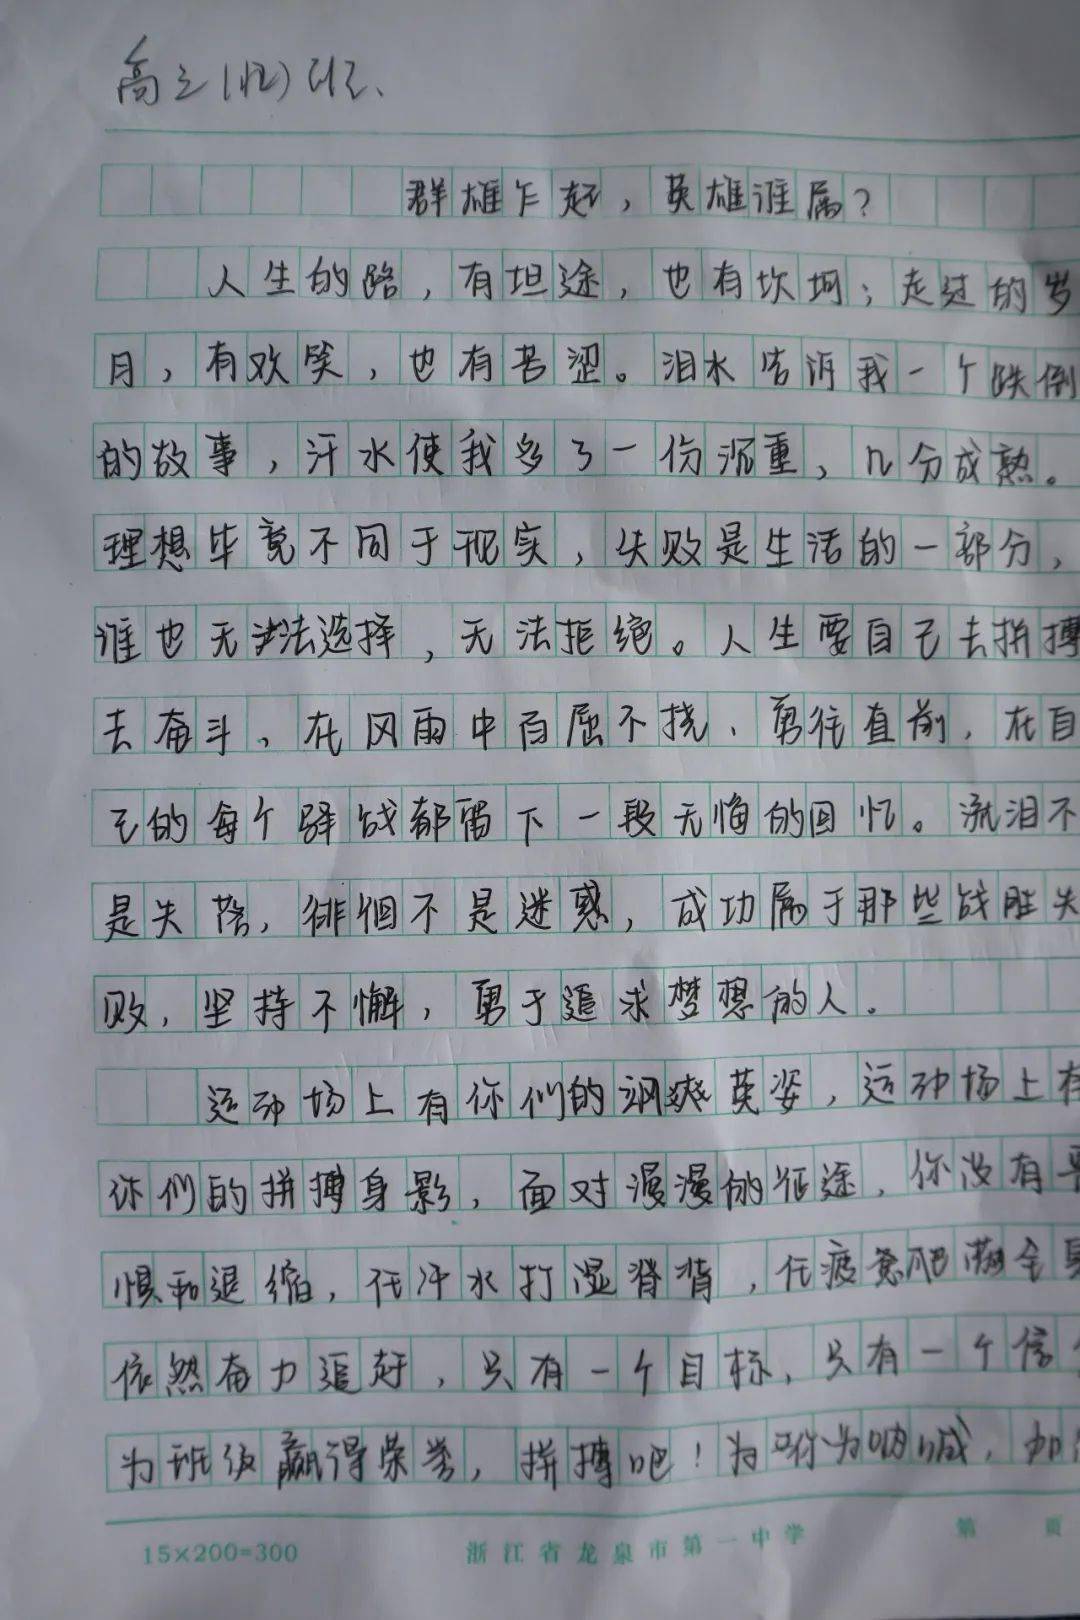 高三(12)班、
群雄乍起，英雄谁属？
人生的路，有坦途，也有坎坷；走过的岁
月，有欢笑，也有苦涩。泪水告诉我一个跌倒
的故事，汗水使我多了一份沉重，几分成熟。
理想毕竟不同于现实，失败是生活的一部分，
谁也无法选择，无法拒绝。人生要自己去拼搏
去奋斗、在风雨中百屈不挠、勇往直前，在自
己的每个驿战都留下一段无悔的回忆。流泪不
是失陪，徘徊不是迷惑，成功属于那些战胜失
败，坚持不懈，勇于追求梦想的人。
运动场上有你们的飒爽英姿，运动场上有
你们的拼搏身影，面对漫漫的征途，你没有畏
惧和退缩，任汗水打湿脊背，任疲惫爬满全身
依然奋力追赶，只有一个目标，只有一个信
为班级赢得荣誉，拼搏吧！为你呐喊，加
15×200=300
浙江省龙泉市第一中学
第 页